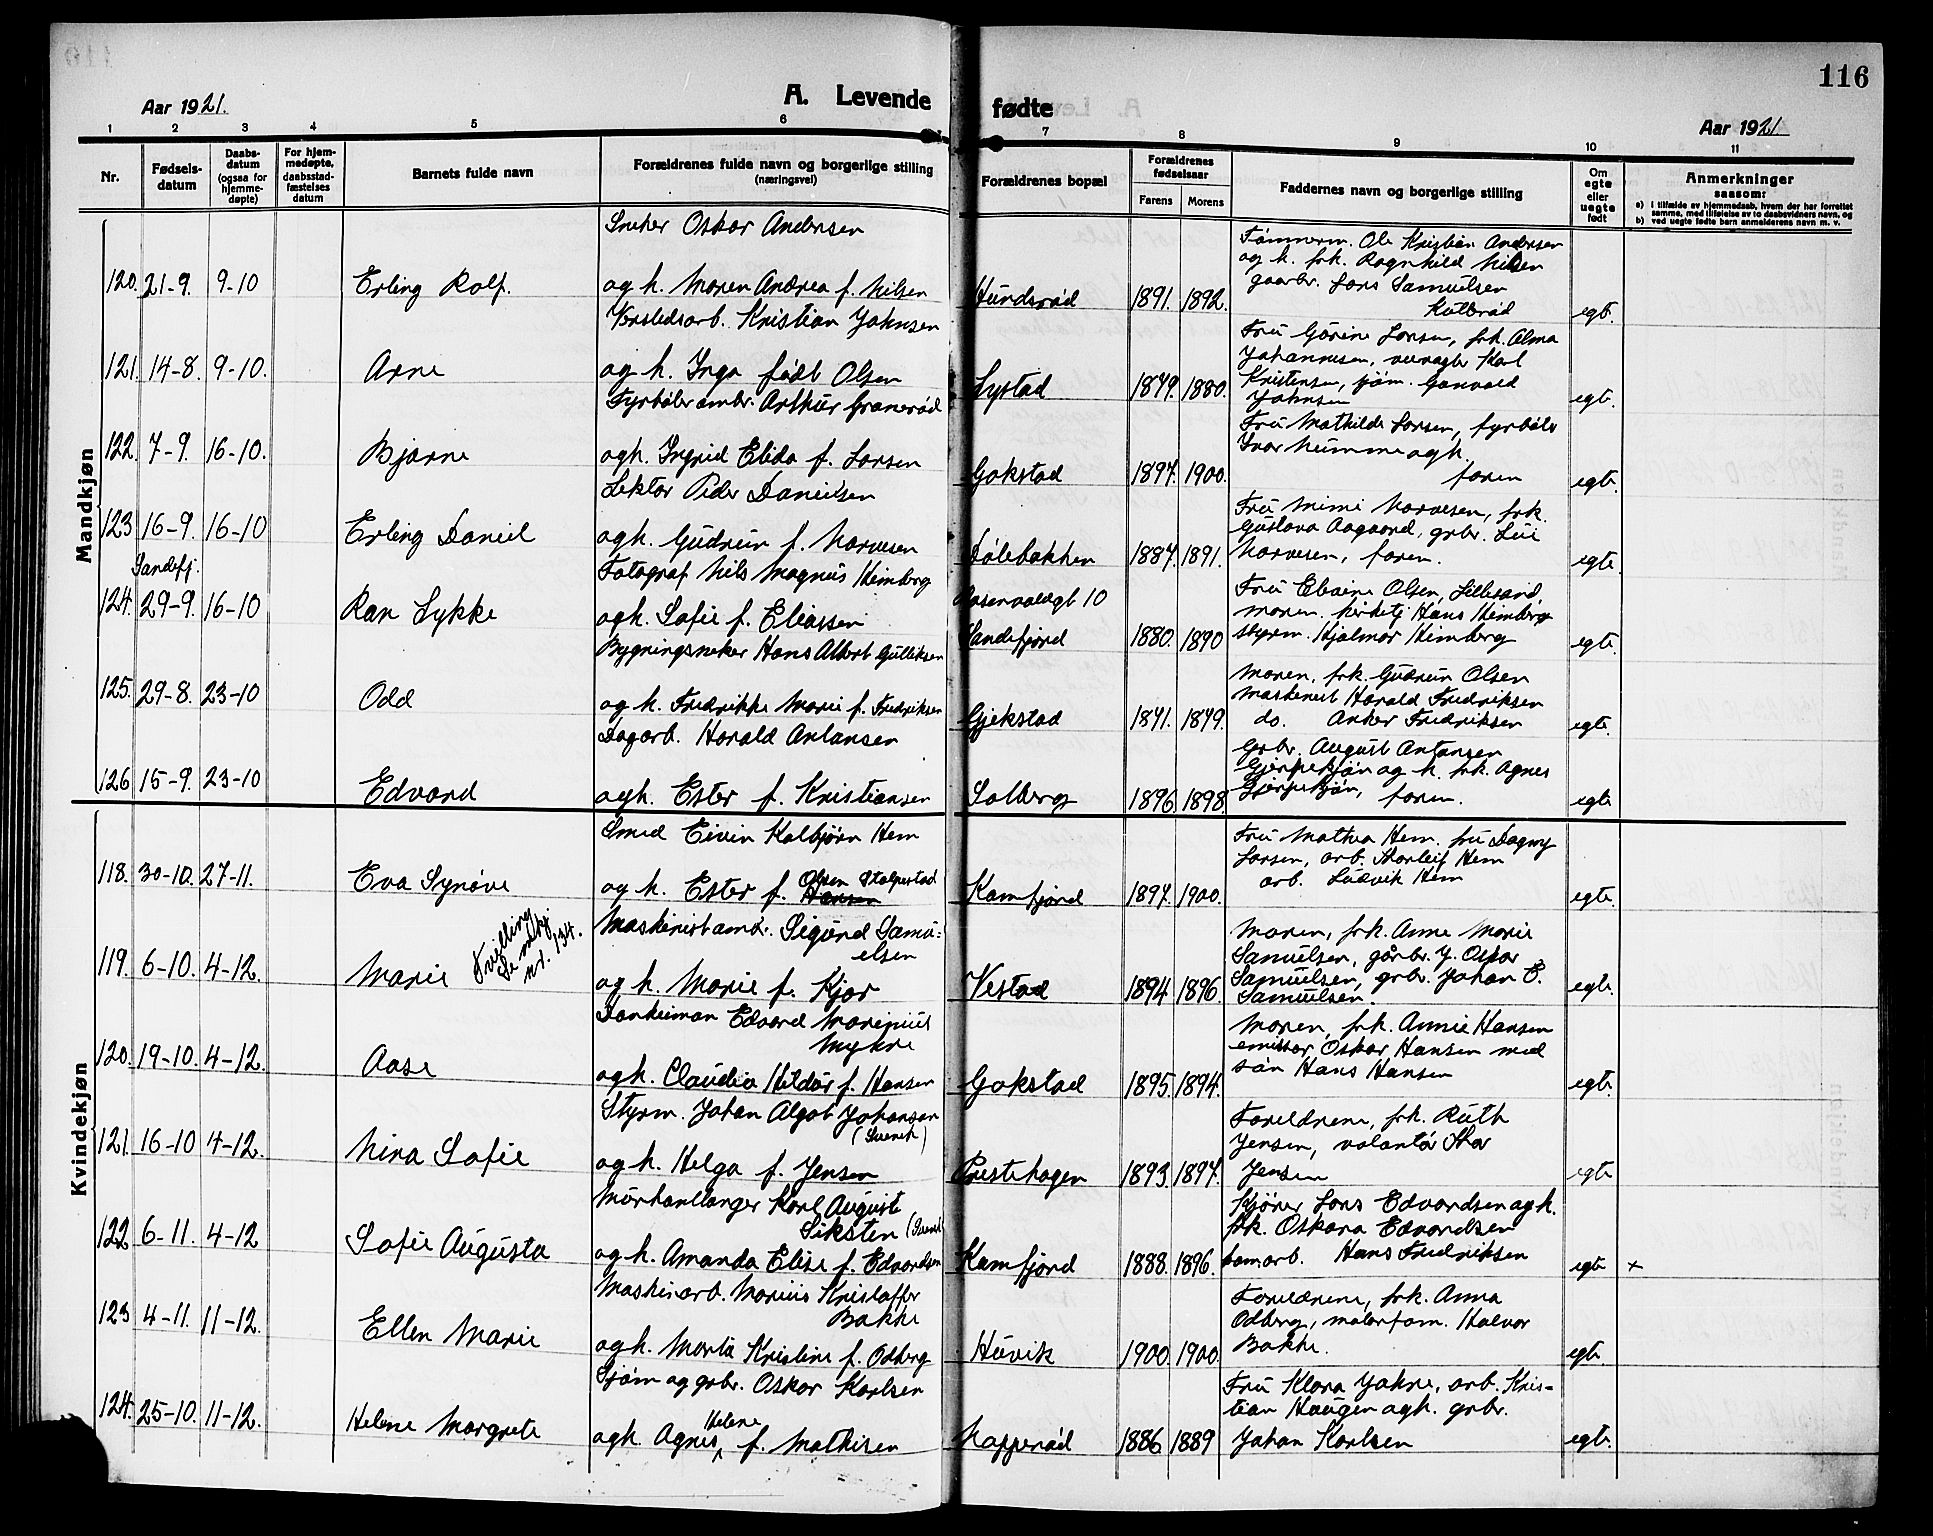 116
Aar 1921.
A. Levende fødte
Aar 1921
1 2 3 4 5 6 7 8 9 10 11
Nr.
Fødsels-
datum
Daabs-
datum
(ogsaa for
hjemme-
døpte)
For hjem-
medøpte,
daabsstad-
fæstelses
datum
Barnets fulde navn
Forældrenes fulde navn og borgerlige stilling
(næringsvei)
Forældrenes bopæl
Forældrenes
fødselsaar
Farens Morens
Faddernes navn og borgerlige stilling
Om
egte
eller
uegte
født
Anmerkninger
saasom:
a) i tilfælde av hjemmedaab, hvem der har forrettet
samme, med tilføielse av to daabsvidners navn, og
b) ved uegte fødte barn anmelderens navn m. v.
Mandkjøn
Sneker Oskar Andersen
Tømmerm. Ole Kristian Andersen
og h. frk. Ragnhild Nilsen
120. 21-9. 9-10 Erling Rolf. og h. Maren Andrea f. Nilsen Hundsrød 1891. 1892. gaarbr. Lars Samuelsen
Kulbrød egt.
Verstedsarb. Kristian Johnsen
Fru Gurine Larsen, frk. Alma
Johannesen, Karl
121. 14-8. 9-10. Arne og h. Inga født Olsen Lystad 1879. 1880. Kristensen, sjøm. Johnsen egte.
Fyrbøter ombr. Arthur Granerød
Fru Mathilde Larsen, fyrbøter
Ivar Numme og h.
122. 7-9. 16-10. Bjarne og h. Ingrid Elida f. Larsen Gokstad 1897. 1900. faren egte.
Lektor Peder Danielsen
Fru Mimi Narvesen, frk.
Gustava Aagaard, grbr. Lui
123 16-9. 16-10 Erling Daniel og h. Gudrun f. Narvesen Dølebakken 1887. 1891. Narvesen, faren. egte.
Sandefj.
Fotograf Nils Magnus Heimberg
Fru Elvine Olsen, Lillesand,
124. 29-9. 16-10 Ran Lykke og h. Sofie f. Eliassen Rosenvoldgt 10
Sandefjord 1880. 1890 moren, kirketj Hans Heimberg
styrm. Hjalmar Heimberg egte.
Bygningsneker Hans Albert Gulliksen
Moren, frk. Gudrun Olsen
maskinist Harald Fredriksen
125. 29-8. 23-10 Odd og h. Fredrikke Marie f. Fredriksen Gjekstad 1871. 1879. do. Anker Fredriksen egte.
Dagarb. Harald Antonsen
Grbr. August Antonsen
Gjerpekjøn og h. frk. Agnes
126 15-9. 23-10 Edvard og h. Ester f. Kristiansen Solberg 1896 1898 Gjerpekjøn, faren. egte
Kvindekjøn
Smed Eivin Kolbjørn Hem
Fru Mathea Hem. fru Dagny
Larsen, arb. Thorleif Hem
118. 30-10. 27-11. Eva Synøve og h. Ester f. Olsen Stolpestad Hansen Kamfjord 1897. 1900. arb. Ludvik Hem egte.
Maskinistamd. Sigurd Samu-
elsen
Moren, frk. Anne Marie
Samuelsen, gårbr. J. Oskar
119. 6-10. 4-12. Marie Tvilling
Se mdkj
nr. 134. og h. Marie f. Kjær Vestad 1894 1896. Samuelsen, grbr. Johan E.
Samuelsen. egte.
Donkeiman Edvard Marinius
Mykre
Moren, frk. Annie Hansen
emissær Oskar Hansen med
120. 19-10. 4-12. Aase og h. Claudia Heldør f. Hansen Gokstad 1895. 1894. søn Hans Hansen egte.
Styrm. Johan Algot Johansen
(Svensk)
Foreldrene, frk. Ruth
Jensen, volontør Thor
121. 16-10 4-12. Nina Sofie og h. Helga f. Jensen Prestehagen 1893. 1897. Jensen egte
Murhantlanger Karl August
Siksten (Svensk)
Kjører Lars Edvardsen og h.
frk. Oskara Edvardsen
122 6-11. 4-12 Sofie Augusta og h. Amanda Elise f. Edvardsen Kamfjord 1888. 1896. tomarb. Hans Fredriksen egte +
Maskinarb. Marius Kristoffer
Bakke
Foreldrene, frk. Anna
Odberg, malerfom. Halvor
123 4-11. 11-12. Ellen Marie og h. Marta Kristine f. Odberg Huvik 1900. 1900. Bakke. egt.
Sjøm og grbr. Oskar Karlsen
Fru Klara Jahre, arb. Kris-
tian Haugen og h. grbr.
124. 25-10. 11-12. Helene Margrete og h. Agnes Helene f. Mathisen Napperød 1886 1889 Johan Karlsen egte.